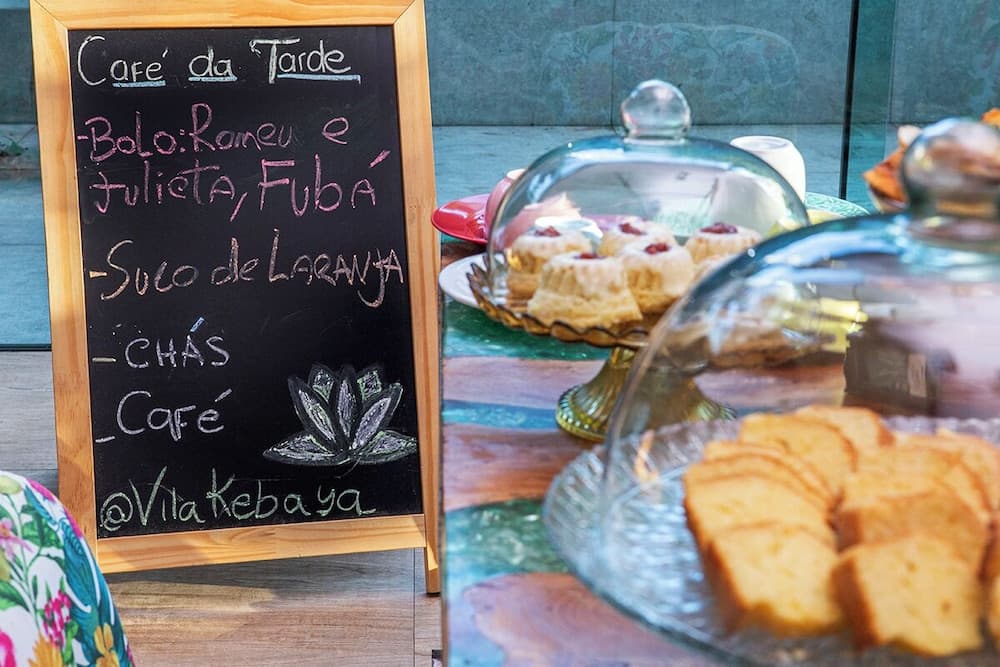 Café da Tarde
-Bolo: Romeu e
Julieta, Fubá
-Suco de LARANJA
-CHÁS
-Café
@Vila Kebaya